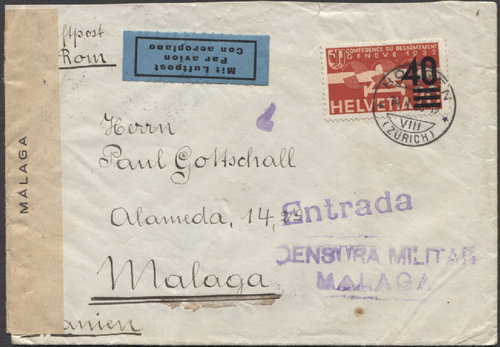 Luftpost
Rom
Mit Luftpost
Par avion
Con aeroplano
CONFERENCE DU DESARMEMENT
GENEVE 1932
40
HELVETIA
VIII
(ZÜRICH)
MALAGA
Herrn
Paul Gottschall
Alameda, 14, 2º
Malaga
Spanien
Entrada
CENSURA MILITAR
MALAGA